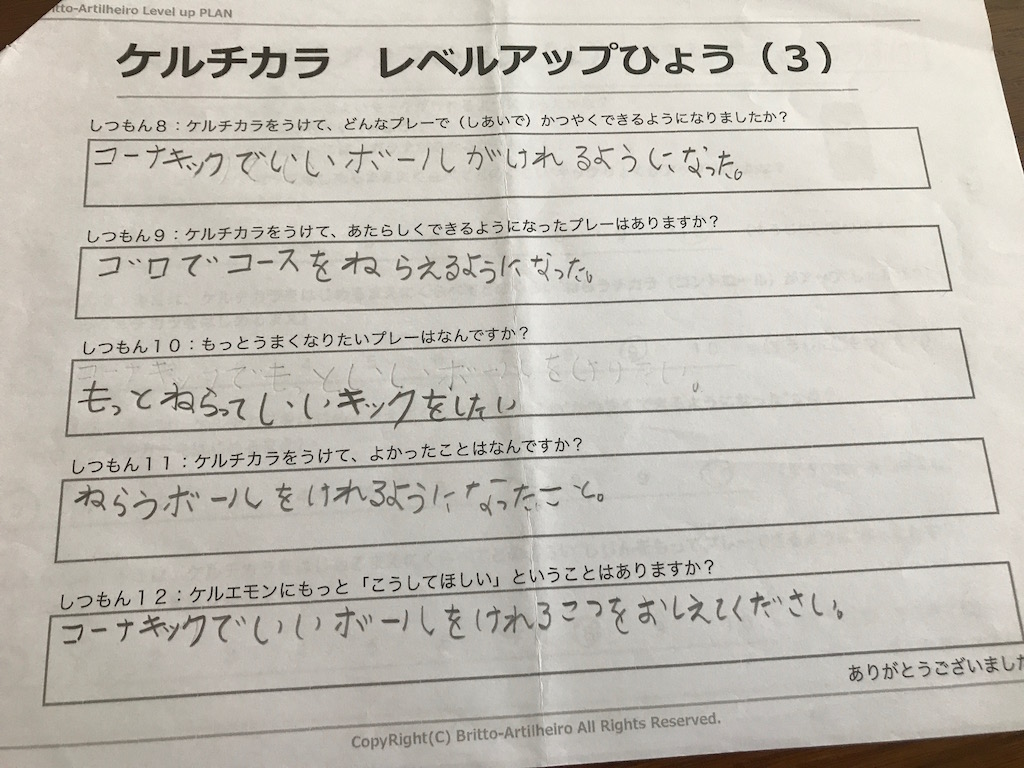 itto-Artilheiro Level up PLAN
ケルチカラ レベルアップひょう（３）
しつもん８：ケルチカラをうけて、どんなプレーで（しあいで）かつやくできるようになりましたか？
コーナキックでいいボールがけれるようになった。
しつもん９：ケルチカラをうけて、あたらしくできるようになったプレーはありますか？
ゴロでコースをねらえるようになった。
しつもん１０：もっとうまくなりたいプレーはなんですか？
コーナキックでもっといいボールをけりたい。
もっとねらっていいキックをしたい
しつもん１１：ケルチカラをうけて、よかったことはなんですか？
ねらうボールをけれるようになったこと。
しつもん１２：ケルエモンにもっと「こうしてほしい」ということはありますか？
コーナキックでいいボールをけれるこつをおしえてください。
ありがとうございました
CopyRight(C) Britto-Artilheiro All Rights Reserved.